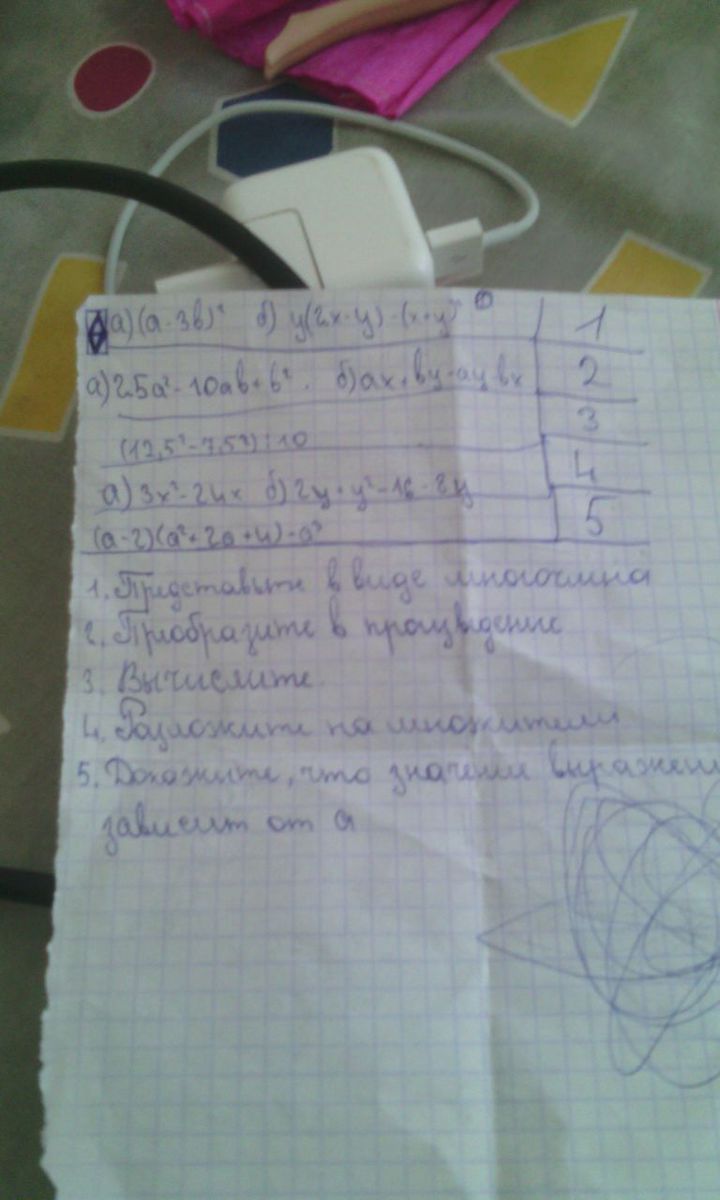 а) (а-3в)² б) у(2х-у)-(х+у)² 1
а) 25а²-10ав+в². б) ах+ву-ау-вх 2
(12,5²-7,5²):10 3
а) 3х²-24х б) 2у+у²-16-8у 4
(а-2)(а²+2а+4)-а³ 5
1. Представьте в виде многочлена
2. Преобразите в произведение
3. Вычислите
4. Разложите на множители
5. Докажите, что значение выражени
зависит от а